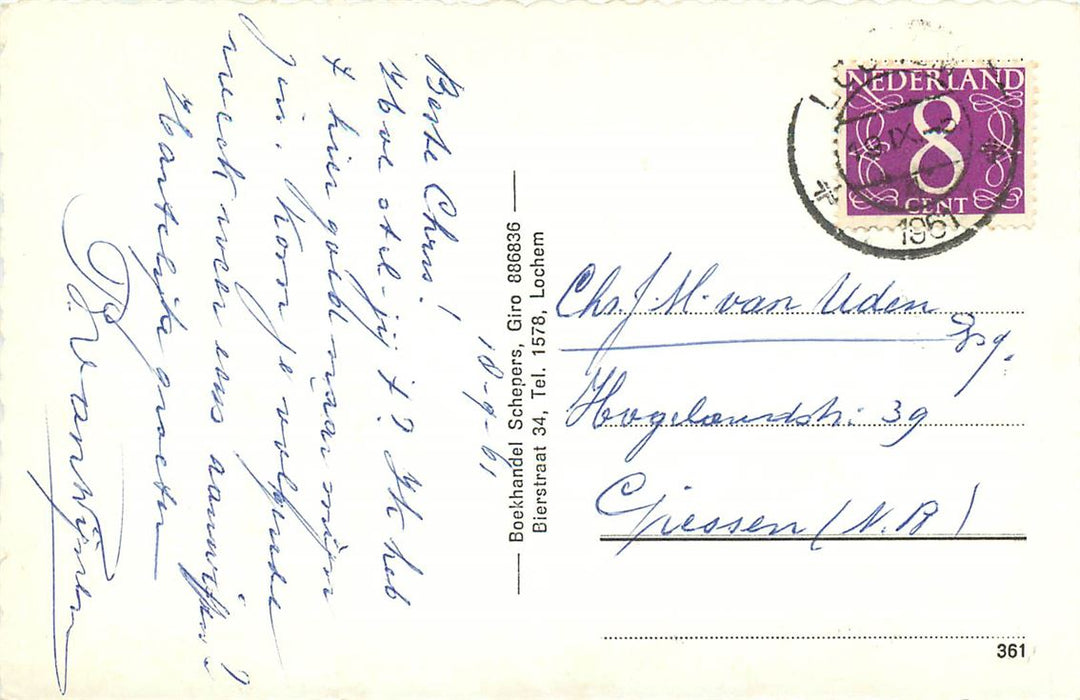 Beste Chris!
18-9-61
Hoe stel-jij 't? Ik heb
't hier goed naar mijn
zin. Kom je volgende
week weer eens aanwippen?
Hartelijke groeten
P. van Wijnen
Boekhandel Schepers, Giro 886836
Bierstraat 34, Tel. 1578, Lochem
NEDERLAND
8
CENT
1961
Chs. J. M. van Uden
Hogelandstr. 39
Giessen (N.B)
361